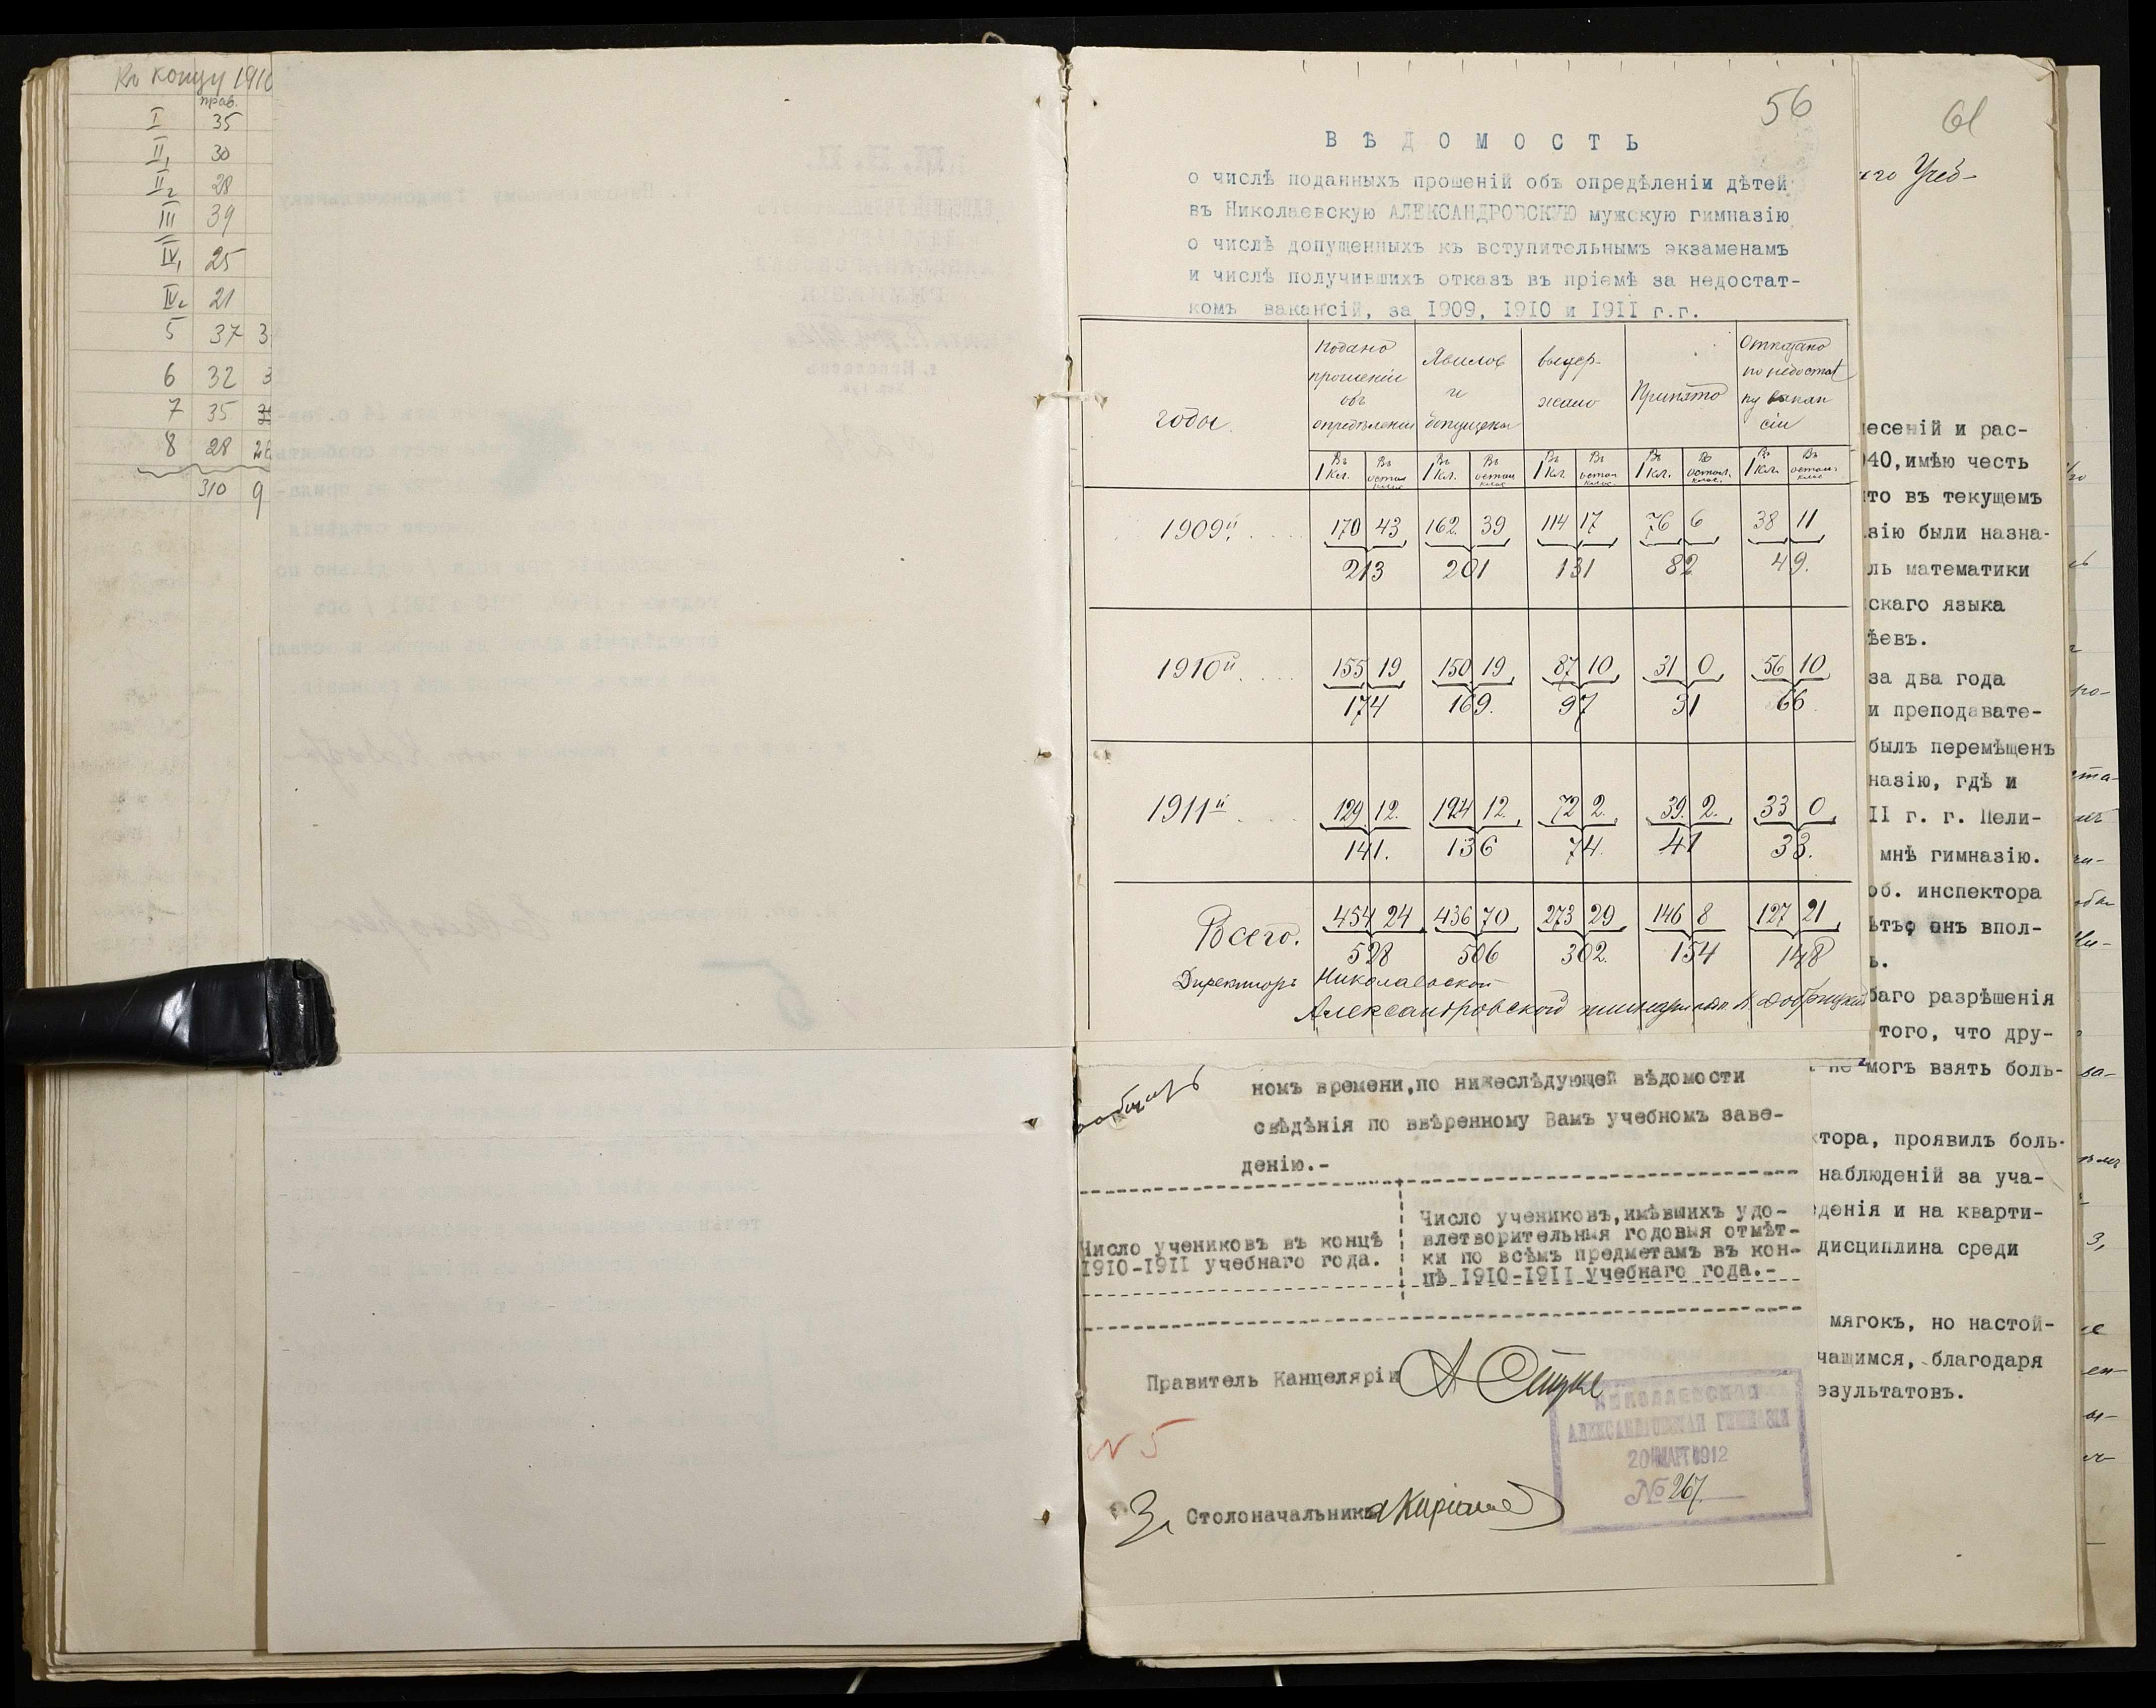 Къ концу 1910
прав.
I 35
II₁ 30
II₂ 28
III 39
IV₁ 25
IV₂ 21
5 37 3
6 32 3
7 35
8 28 26
310 9
56
ВѢДОМОСТЬ
о числѣ поданныхъ прошеній объ опредѣленіи дѣтей
въ Николаевскую АЛЕКСАНДРОВСКУЮ мужскую гимназію
о числѣ допущенныхъ къ вступительнымъ экзаменамъ
и числѣ получившихъ отказъ въ пріемѣ за недостат-
комъ вакансій, за 1909, 1910 и 1911 г.г.
годы
Подано прошеній объ опредѣленіи
Явилось и допущены
выдер-
жано
Принято
Отказано по недостат
ку вакан
сій
Въ 1 Кл. Въ остал клас Въ 1 Кл. Въ остал клас Въ 1 Кл. Въ остал клас. Въ 1 Кл. Въ остал. клас. Въ 1 Кл. Въ остал. клас
1909й.... 170 43 162 39 114 17 76 6 38 11
213 201 131 82 49.
1910й.... 155 19 150 19 87 10 31 0 56 10
174 169. 97 31 66.
1911й.... 129 12. 124 12. 72 2. 39. 2. 33 0
141. 136 74. 41 33.
Всего. 454 24 436 70 273 29 146 8 127 21
528 506 302. 154 148
Директоръ Николаевской
Александровской
номъ времени,по нижеслѣдующей вѣдомости
свѣдѣнія по ввѣренному Вамъ учебномъ заве-
денію.-
Число учениковъ въ концѣ
1910-1911 учебнаго года.
Число учениковъ,имѣвшихъ удо-
влетворительныя годовыя отмѣт-
ки по всѣмъ предметамъ въ кон-
цѣ 1910-1911 учебнаго года.-
Правитель Канцеляріи
N 5
За Столоначальника
НИКОЛАЕВСКАЯ
АЛЕКСАНДРОВСКАЯ ГИМНАЗІЯ
20 МАРТ 1912
№ 267.
61
его Учеб-
несеній и рас-
040,имѣю честь
что въ текущемъ
азію были назна-
ль математики
скаго языка
ѣевъ.
за два года
и преподавате-
былъ перемѣщенъ
назію, гдѣ и
II г. г. Пели-
мнѣ гимназію.
об. инспектора
ѣтъ, онъ впол-
ь.
баго разрѣшенія
того, что дру-
не могъ взять боль-
тора, проявилъ боль-
наблюденій за уча-
денія и на кварти-
дисциплина среди
мягокъ, но настой-
чащимся, благодаря
езультатовъ.